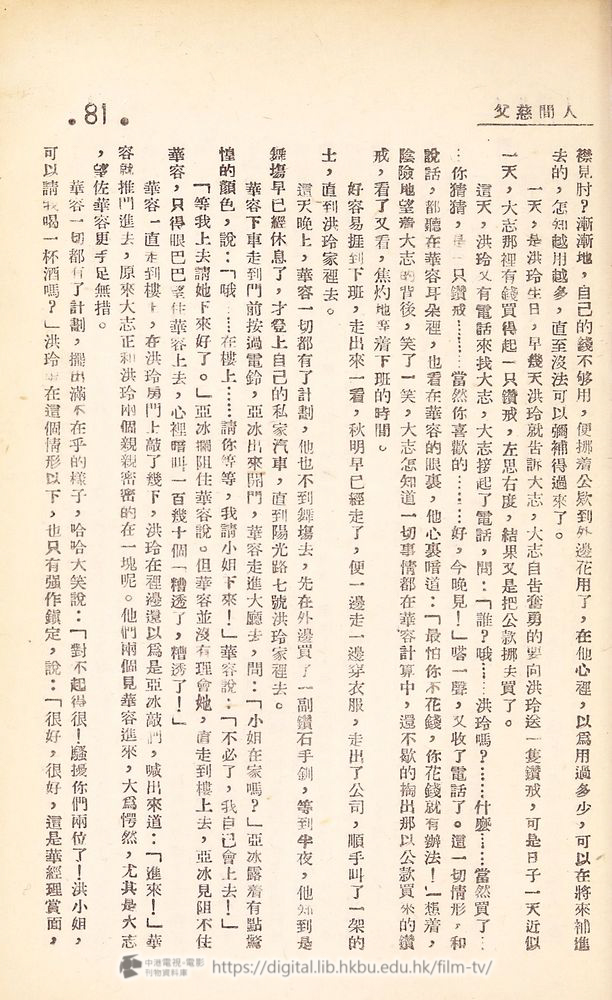 人間慈父
.81.
襟見肘?漸漸地,自己的錢不够用,便挪着公欵到外邊花用了,在他心裡,以爲用過多少,可以在將來補進
去的,怎知越用越多,直至沒法可以彌補得過來了。
一天,是洪玲生日,早幾天洪玲就告訴大志,大志自吿奮勇的要向洪玲送一隻鑽戒,可是日子一天近似
一天,大志那裡有錢買得起一只鑽戒,左思右度,結果又是把公欵挪去買了。
這天,洪玲又有電話來找大志,大志接起了電話,問:「誰?哦……洪玲嗎?……什麽……當然買了…
…你猜猜,是一只鑽戒………當然你喜歡的……好,今晚見!」嗒一聲,又收了電話了。這一切情形,和
說話,都聽在華容耳朵裡,也看在華容的眼裏,他心裏暗道:「最怕你不花錢,你花錢就有辦法!」想着,
陰險地望着大志的背後,笑了一笑,大志怎知道一切事情都在華容計算中,還不歇的掏出那以公欵買來的鑽
戒,看了又看,焦灼地等着下班的時間。
好容易捱到下班,走出來一看,秋明早已經走了,便一邊走一邊穿衣服,走出了公司,順手叫了一架的
士,直到洪玲家裡去。
這天晚上,華容一切都有了計劃,他也不到舞塲去,先在外邊買了一副鑽石手釧,等到半夜,他知到是
舞塲早已經休息了,才登上自己的私家汽車,直到陽光路七號洪玲家裡去。
華容下車走到門前按過電鈴,亞冰出來開門,華容走進大廳去,問:「小姐在家嗎?」亞冰露着有點驚
惶的顏色,說:「哦……在樓上……請你等等,我請小姐下來!」華容說:「不必了,我自己會上去!」
「等我上去請她下來好了。」亞冰攔阻住華容說。但華容並沒有理會她,直走到樓上去,亞冰見阻不住
華容,只得眼巴巴望住華容上去,心裡暗叫一百幾十個「糟透了,糟透了!」
華容一直走到樓上,在洪玲房門上敲了幾下,洪玲在裡邊還以爲是亞冰敲門,喊出來道:「進來!」華
容就推門進去,原來大志正和洪玲兩個親親密密的在一塊呢。他們兩個見華容進來,大爲愕然,尤其是大志
,望住華容更手足無措。
華容一切都有了計劃,擺出滿不在乎的樣子,哈哈大笑說:「對不起得很!騷擾你們兩位了!洪小姐,
可以請我喝一杯酒嗎?」洪玲在這個情形以下,也只有强作鎭定,說:「很好,很好,這是華經理賞面,
中港電視・電影
刊物資料庫
https://digital.lib.hkbu.edu.hk/film-tv/